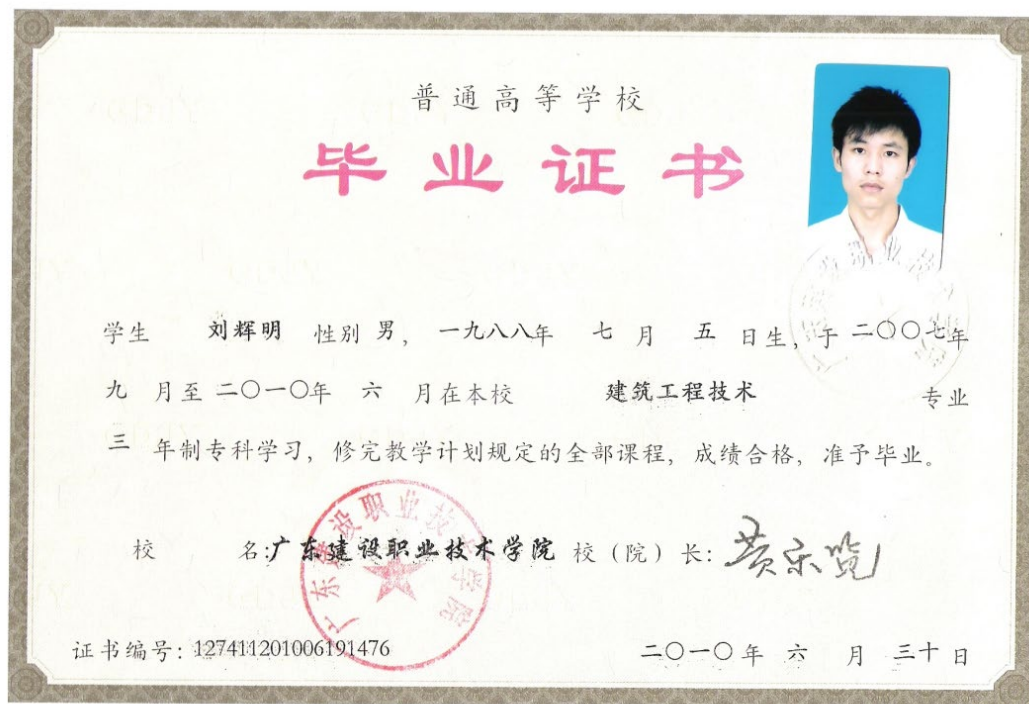 普通高等学校
毕业证书
学生 刘辉明 性别 男，一九八八年 七 月 五 日生，于 二〇〇七年
九 月至 二〇一〇年 六 月在本校 建筑工程技术 专业
三 年制专科学习，修完教学计划规定的全部课程，成绩合格，准予毕业。
校 名:广东建设职业技术学院 校（院）长:
广东建设职业技术学院
证书编号：127411201006191476 二〇一〇年 六 月 三十 日